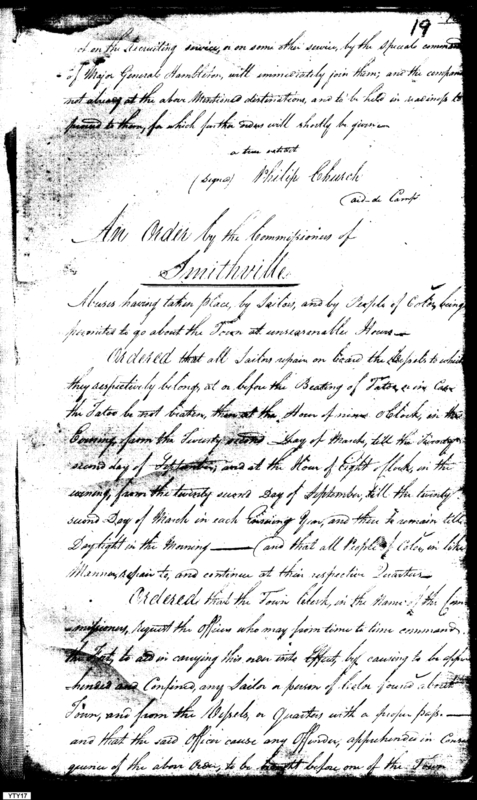 19
on the Recruiting service, or on some other service, by the special command
of Major General Hambleton, will immediately join them; and the company
not already at the above Mentioned destinations, and to be held in readiness to
proceed to them, for which further orders will shortly be given
a true extract
(Signed) Philip Church
aid-de Camp
An Order by the Commissioners of
Smithville
Abuses having taken place, by Sailors, and by People of Color, being
permited to go about the Town at unreasonable Hours—
Ordered that all Sailors repair on board the Vessels to which
they respectively belong, at or before the Beating of Tatoo, & in Case
the Tatoo be not beaten, then at the Hour of nine o Clock, in the
Evening, from the Twenty second Day of March, till the Twenty
second day of September, and at the Hour of Eight o Clock, in the
evening, from the twenty second Day of September, till the twenty
second Day of March in each Ensuing Year, and there to remain till
Daylight in the Morning — (and that all People of Color, in like
Manner, repair to, and continue at their respective Quarters—
Ordered that the Town Clerk, in the Name of the Com
missioners, request the Officers who may from time to time command
the Fort, to aid in carrying this order into Effect, by causing to be appre
hended and Confined, any Sailor or person of Color found about
Town, and from the Vessels, or Quarters with a proper pass.—
and that the said Officer cause any Offender, apprehended in Conse
quence of the above Order, to be brought before one of the Town
YTY17